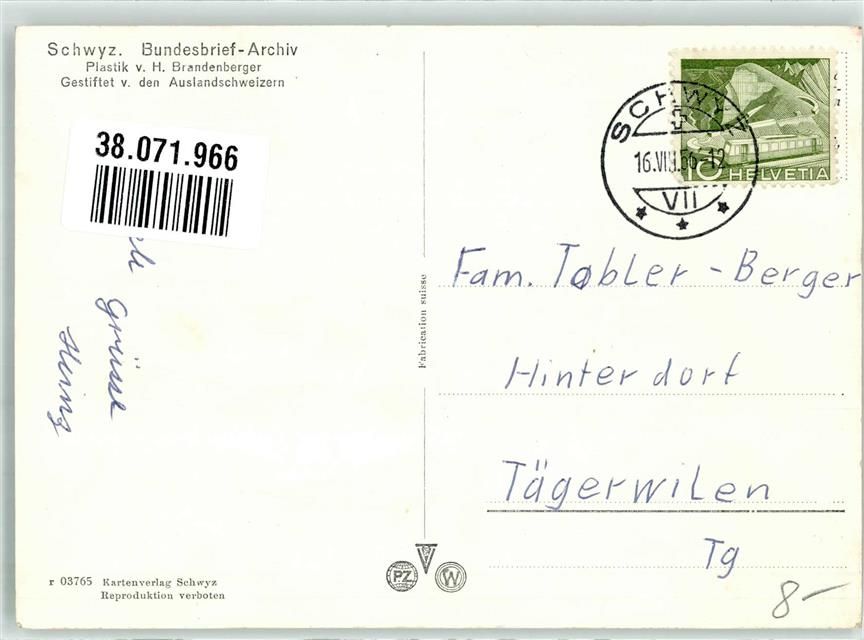 Schwyz. Bundesbrief-Archiv
Plastik v. H. Brandenberger
Gestiftet v. den Auslandschweizern
38.071.966
Grüsse
Heinz
Fabrication suisse
SCHWYZ
16.VIII.56-12
VII
10 HELVETIA
Fam. Tobler - Berger
Hinterdorf
Tägerwilen
Tg
r 03765 Kartenverlag Schwyz
Reproduktion verboten
PZ
W
8-